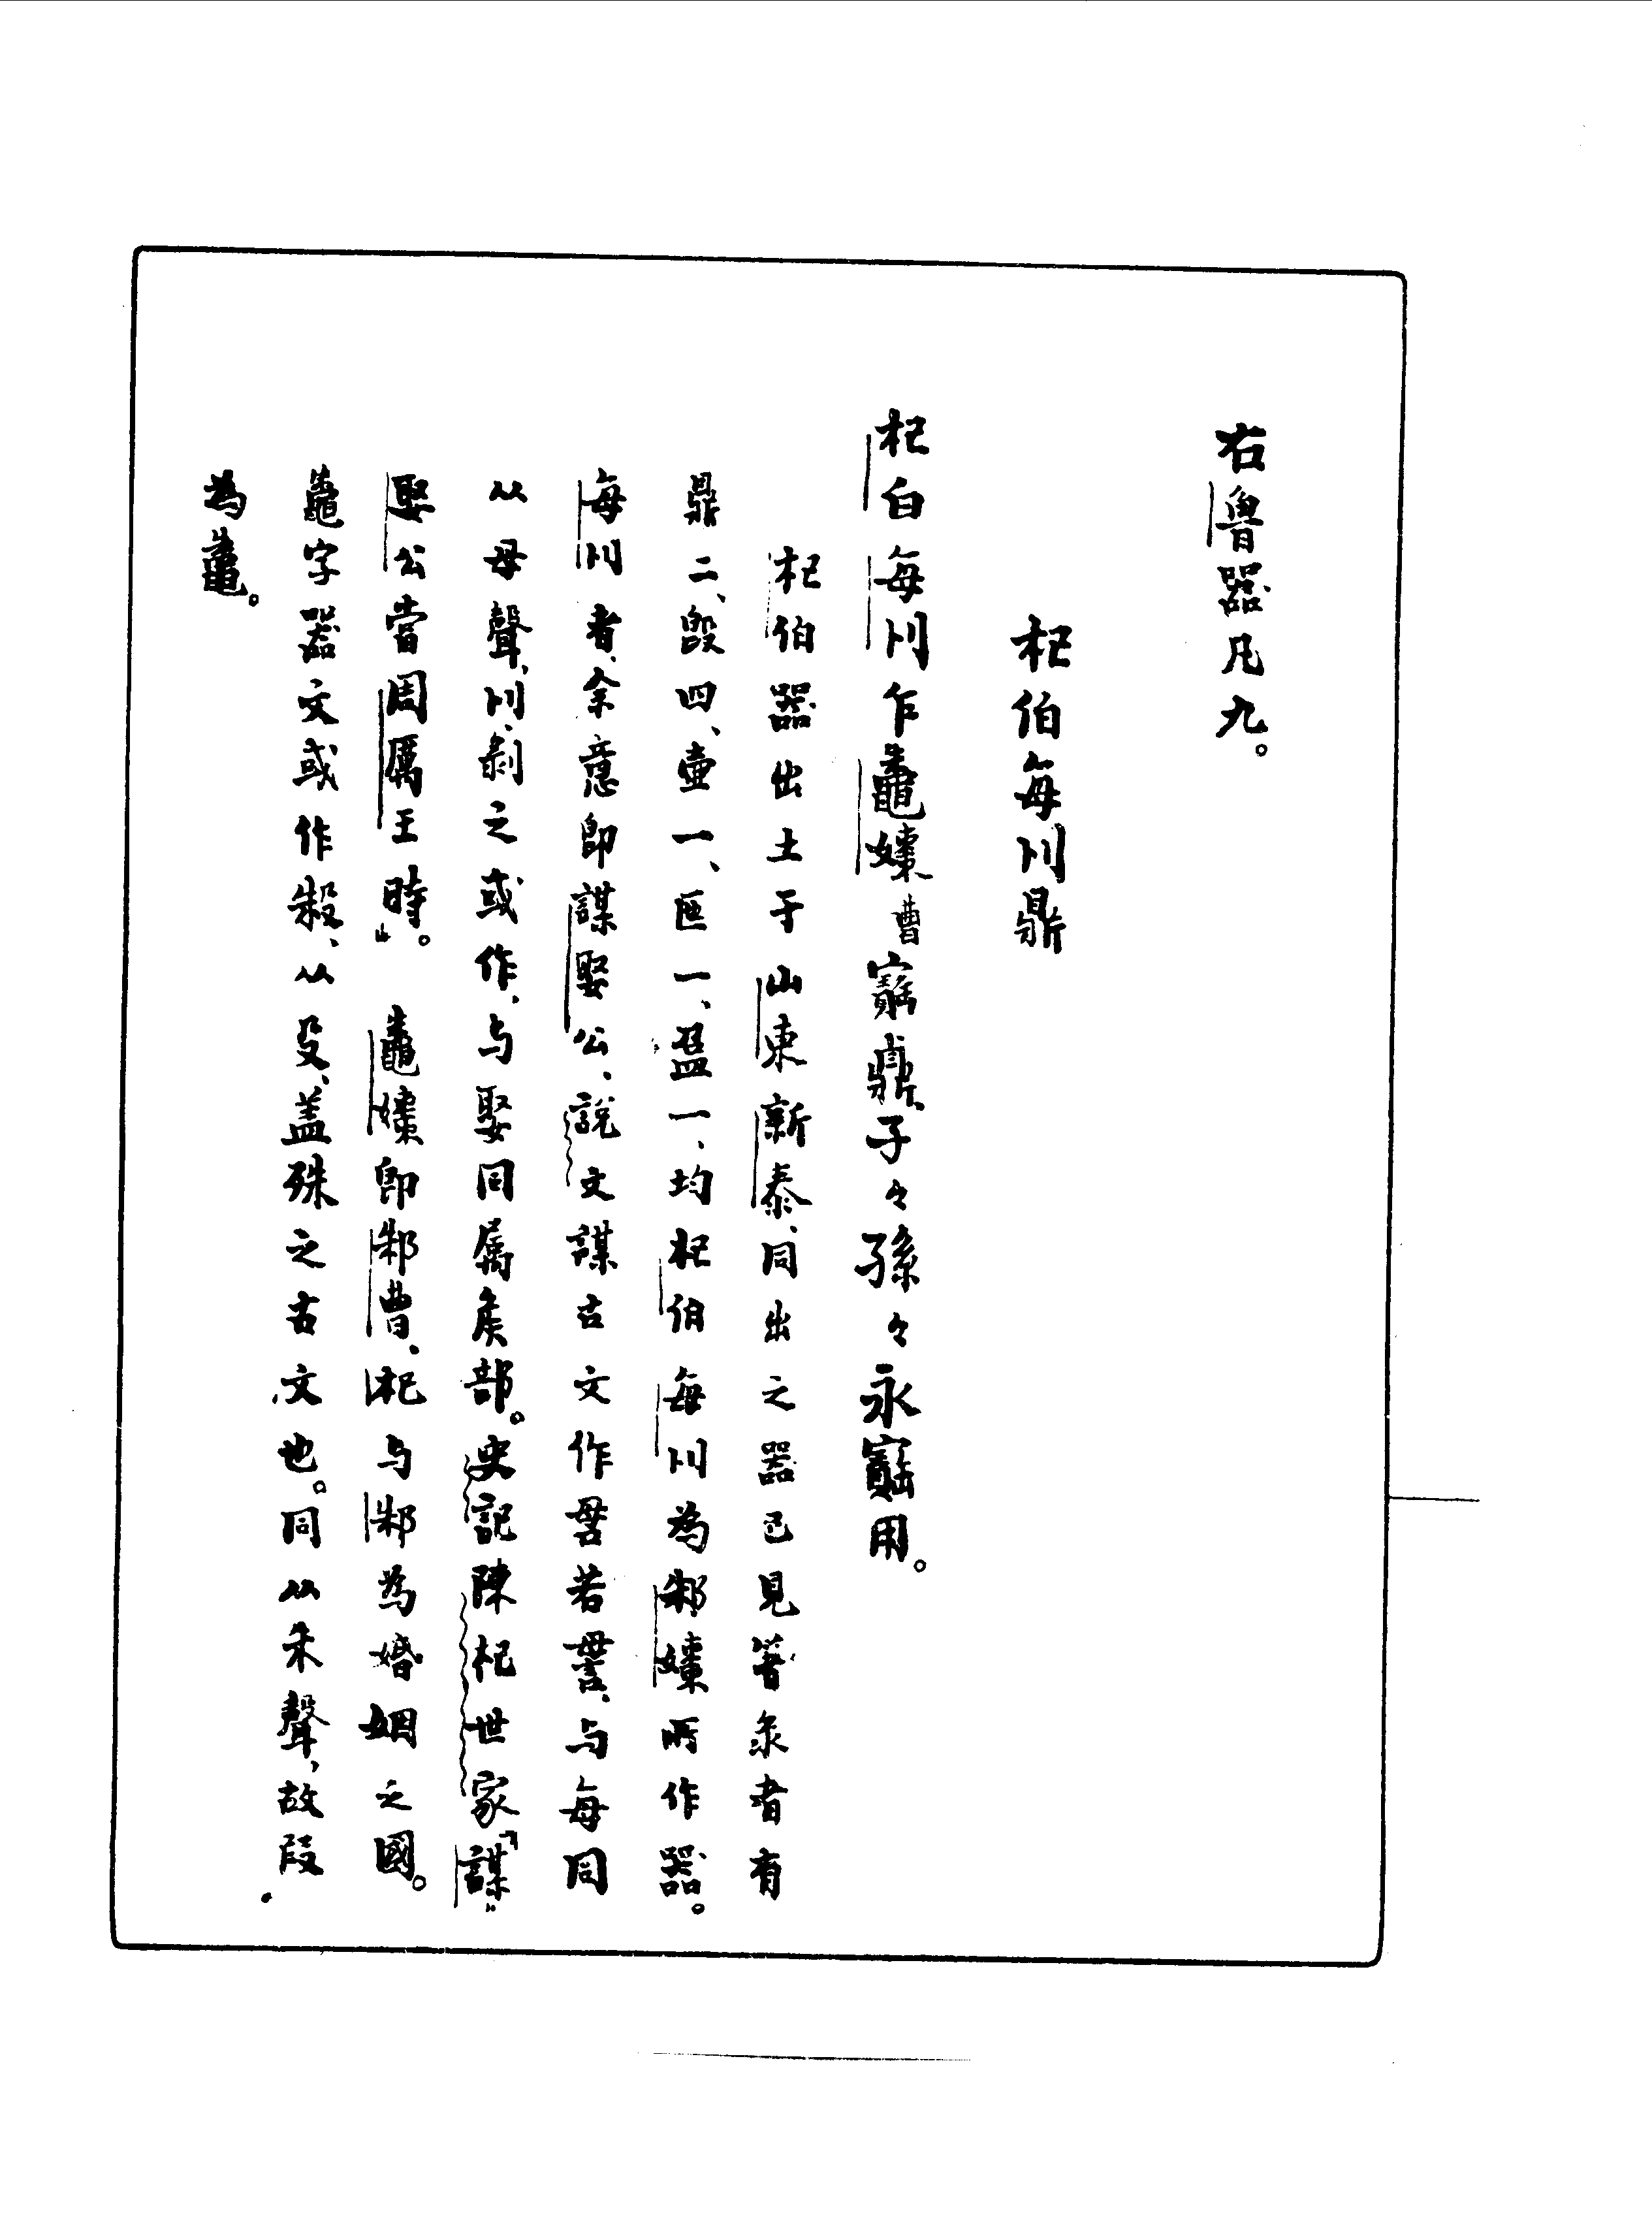 右魯器凡九。
杞伯每刅鼎
杞白每刅乍鼄嫊曹寶鼎、子々孫々永寶用。
杞伯器出土于山東新泰、同出之器已見箸彔者有
鼎二、毁四、壷一、匜一、盁一、均杞伯每刅為邾嫊所作器。
每刅者、余意即謀娶公、説文謀古文作𠰔若𧦥、与每同
从母聲、刅、剏之或作、与娶同属矦部。史記陳杞世家「謀
娶公當周厲王時」。鼄嫊即邾曹、杞与邾為婚姻之國。
鼄字器文或作𣪩、从殳、盖殊之古文也。同从朱聲、故叚
為鼄。